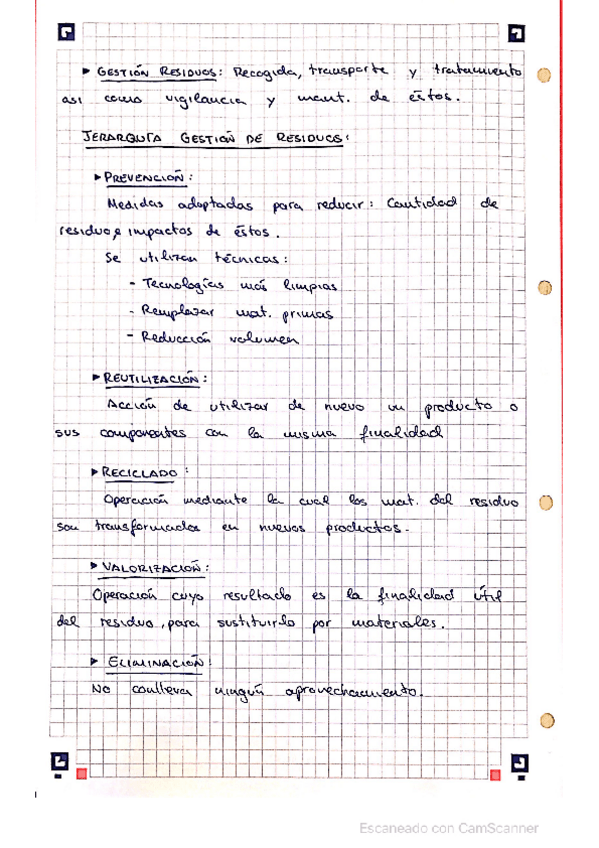 ▸ GESTIÓN RESIDUOS: Recogida, transporte y tratamiento
asi como vigilancia y mant. de éstos.
JERARQUÍA GESTIÓN DE RESIDUOS:
▸ PREVENCIÓN:
Medidas adoptadas para reducir: Cantidad de
residuo, e impactos de éstos.
Se utilizan técnicas:
- Tecnologías más limpias
- Remplazar mat. primas
- Reducción volumen
▸ REUTILIZACIÓN:
Acción de utilizar de nuevo un producto o
sus componentes con la misma finalidad
▸ RECICLADO:
Operación mediante la cual los mat. del residuo
son transformados en nuevos productos.
▸ VALORIZACIÓN:
Operación cuyo resultado es la finalidad útil
del residuo, para sustituirlo por materiales.
▸ ELIMINACIÓN:
No conlleva ningún aprovechamiento.
Escaneado con CamScanner